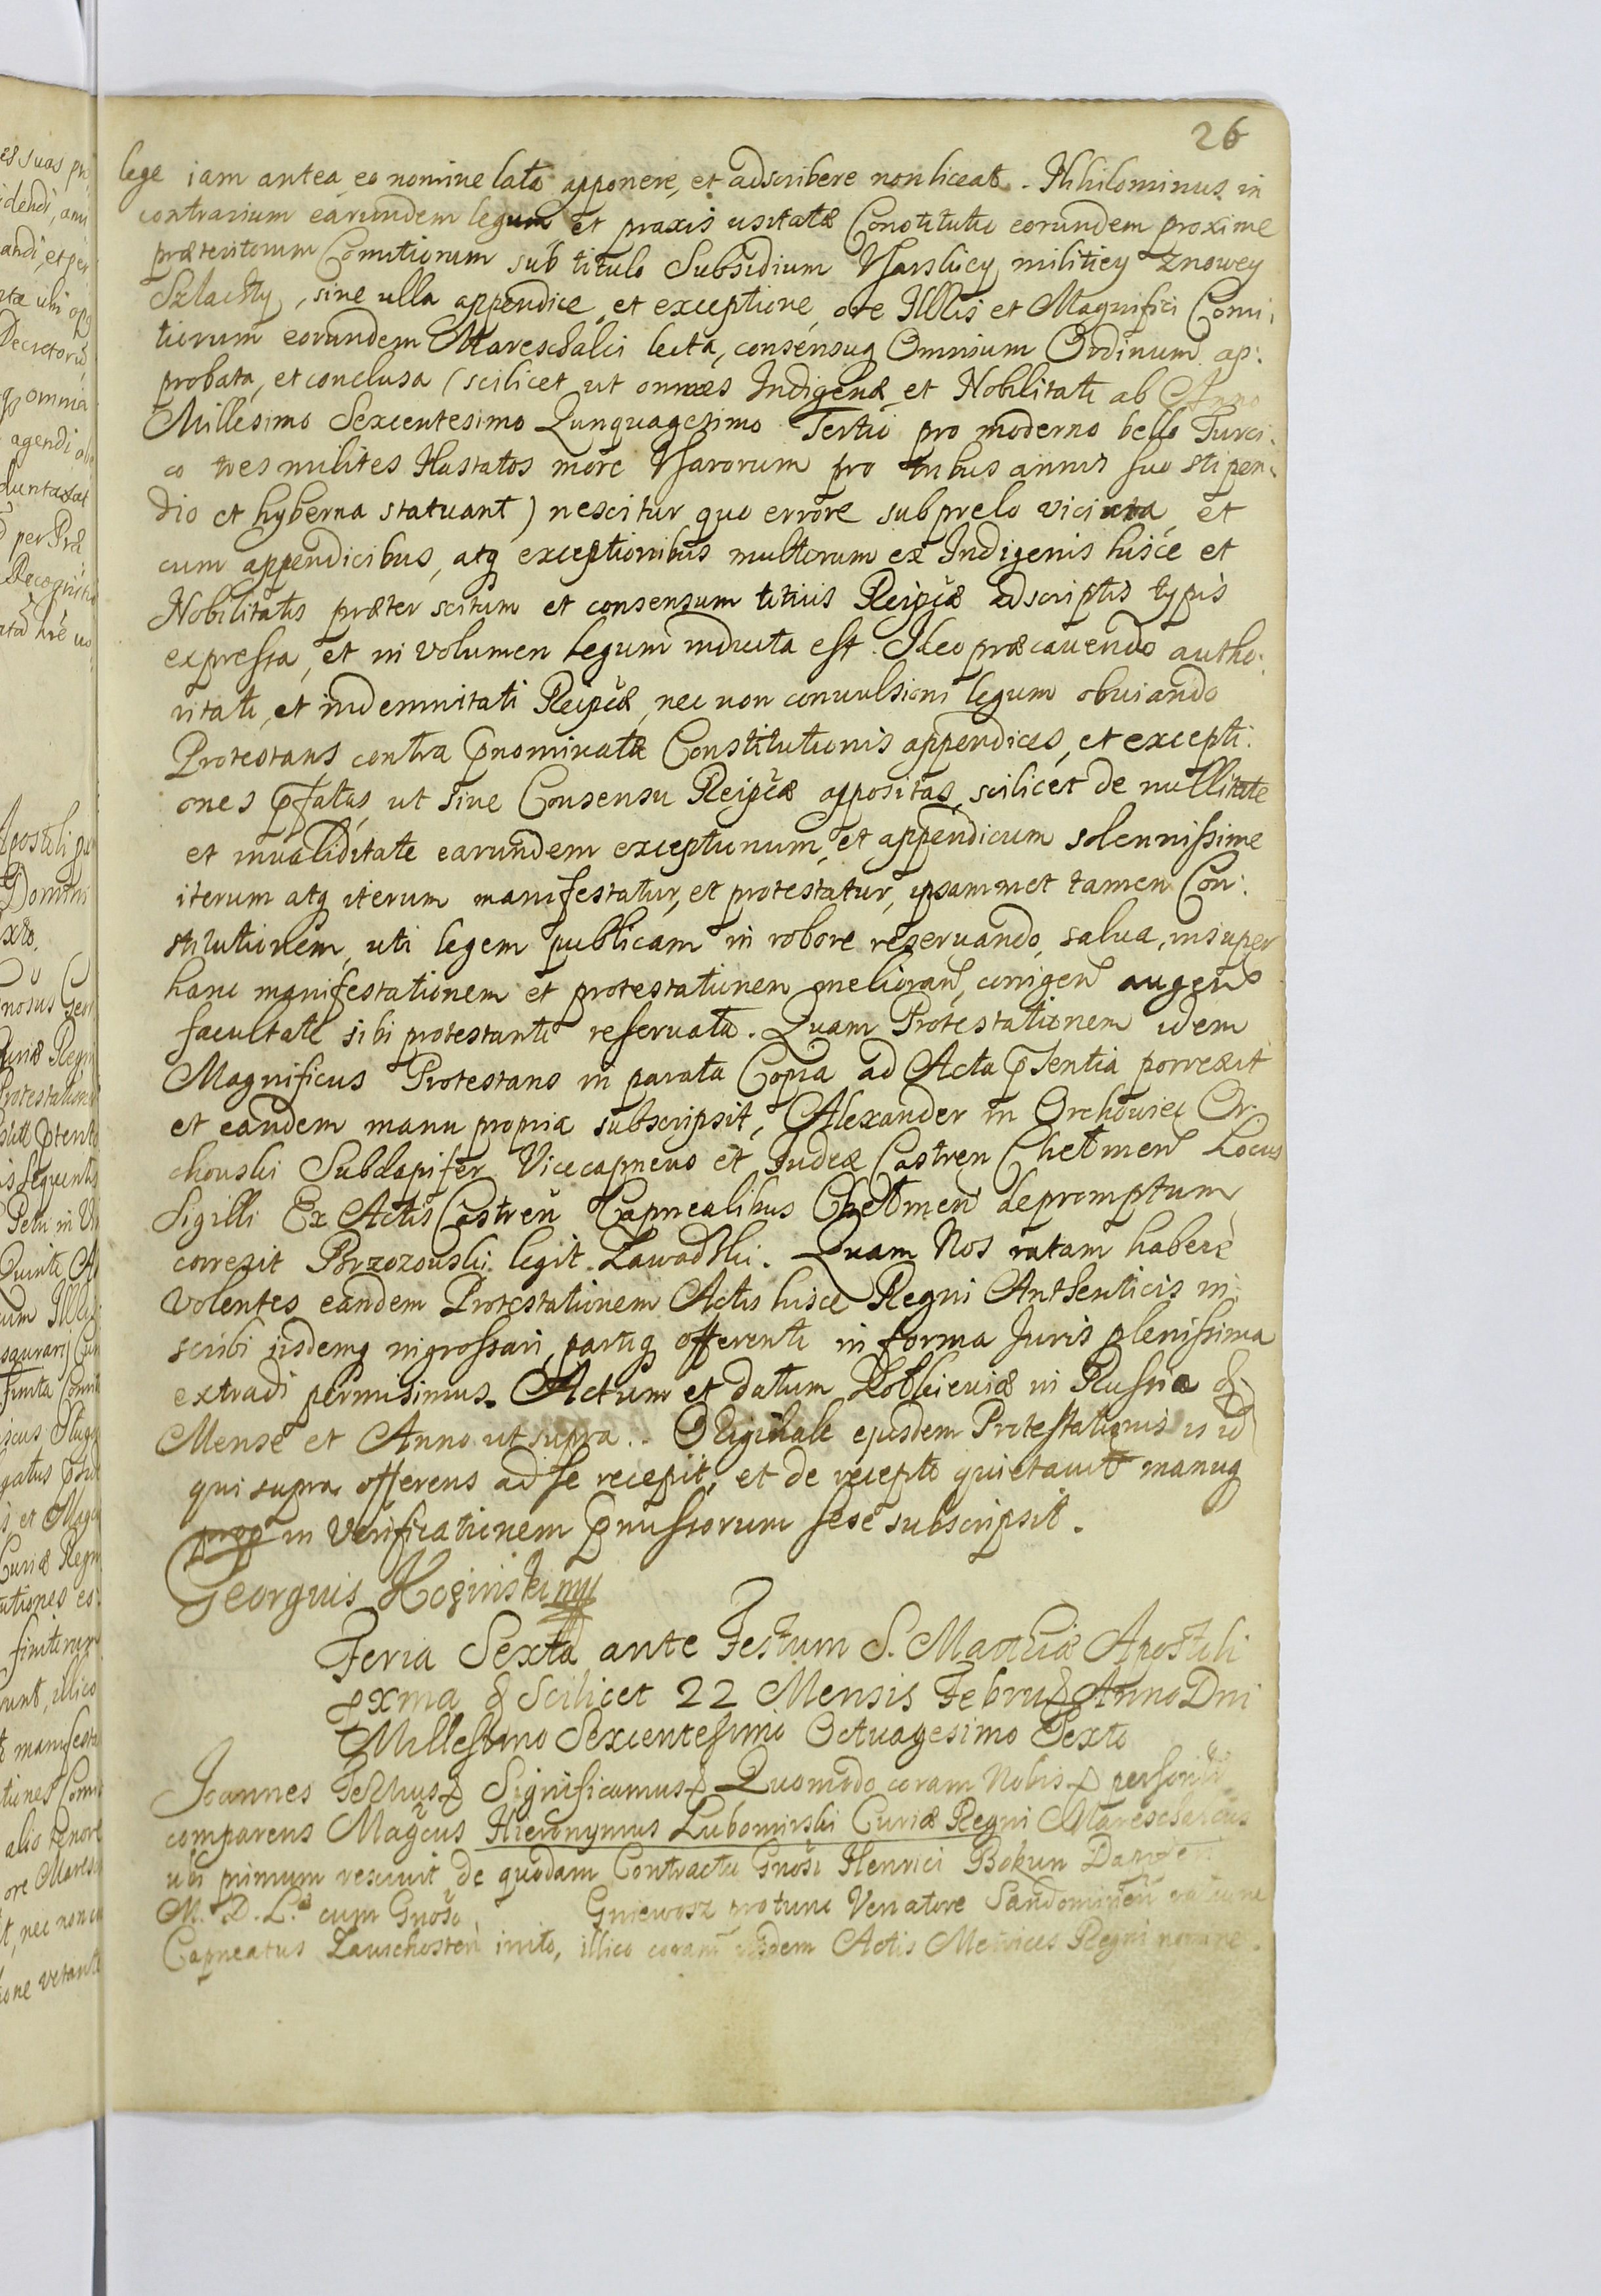 26
lege iam antea eo nomine lata apponere, et adscribere non liceat. Nihilominus in
contrarium earundem legum et praxis usitatæ Constitutio eorundem proxime
præteritorum Comitiorum sub titulo Subsidium Usarskiey militiey znowey
Szlachty, sine ulla appendice, et exceptione, ore Illris et Magnifici Comi:
tiorum eorundem Mareschalci lecta, consensuq Omnium Ordinum ap:
probata, et conclusa (scilicet ut omnes Indigenæ et Nobilitati ab Anno
Millesimo Sexcentesimo Quinquagesimo Tertio pro moderno bello Turci:
co tres milites Hastatos more Usarorum pro tribus annis suo stipen:
dio et hyberna statuant) nescitur quo errore sub prelo viciata, et
cum appendicibus, atq exceptionibus multorum ex Indigenis hisce et
Nobilitatis præter scitum et consensum totius Reipcæ adscriptis typis
expressa, et in volumen legum inducta est. Ideo præcavendo autho:
ritati, et indemnitati Reipcæ, nec non convulsioni legum obviando
Protestans contra pnominatæ Constitutionis appendices, et excepti:
ones pfatas, ut sine Consensu Reipcæ appositas, scilicet de nullitate
et invaliditate earundem exceptionum, et appendicum solennissime
iterum atq iterum manifestatur, et protestatur, ipsammet tamen Con:
stitutionem, uti legem publicam in robore reservando, salva, insuper
hanc manifestationem et protestationem meliorand, corrigend augend
facultate sibi protestanti reservata. Quam Protestationem idem
Magnificus Protestans in parata Copia ad Acta psentia porrexit
et eandem manu propria subscripsit, Alexander in Orchowiec Or:
chouski Subdapifer Vicecapneus et Judex Castren Chelmen Locus
Sigilli Ex Actis Castren Capnealibus Chelmen depromptum
correxit Brzozouski legit Zawadski. Quam Nos ratam habere
volentes eandem Protestationem Actis hisce Regni Authenticis in:
scribi iisdemq ingrossari, partiq offerenti in forma Juris plenissima
extradi permisimus. Actum et datum Zolkieviæ in Russia &
Mense et Anno ut supra. Originale ejusdem Protestationis is id
qui supra offerens ad se recepit, et de recepto quietavit manuq
prop in Verificationem pmissorum sese subscripsit.
Georgius mp
Feria Sexta ante Festum S. Mathiæ Apostoli
pxma & scilicet 22 Mensis Febru& Anno Dni
Millesimo Sexcentesimo Octuagesimo Sexto
Joannes Tertius& Significamus& Quomodo coram Nobis &
comparens Magcus Hieronymus Lubomirski Curiæ Regni Mareschalcus
ubi primum rescivit de quodam Contractu Gnosi Henrici Bokun
M. D. L. cum Gnoso Gniewosz protunc Venatore Sandomirien ratione
Capneatus Zawichosten inito, illico coram iisdem Actis Metrices Regni nomine